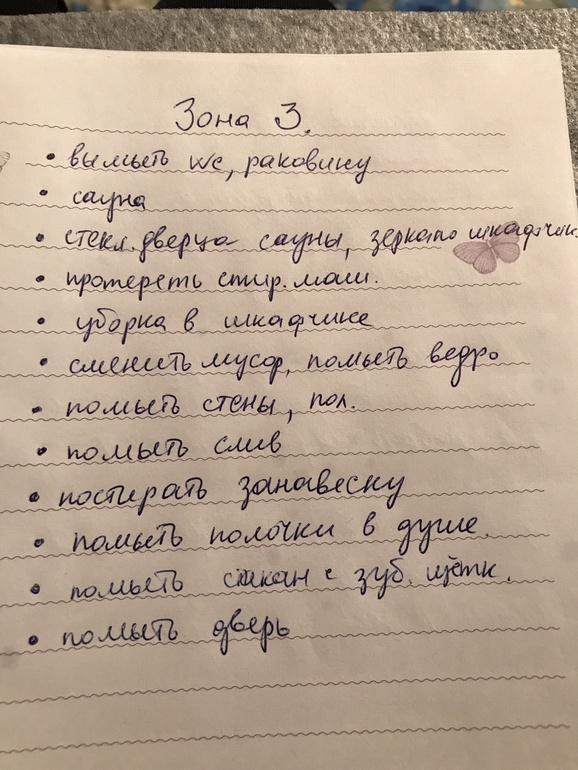 Зона 3.
• вымыть wc, раковину
• сауна
• стекл. дверца сауны, зеркало шкафчик
• протереть стир. маш.
• уборка в шкафчике
• сменить мусор, помыть ведро
• помыть стены, пол.
• помыть слив
• постирать занавеску
• помыть полочки в душе.
• помыть стакан с зуб. щётк.
• помыть дверь